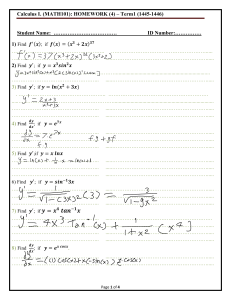 Calculus I. (MATH101): HOMEWORK (4) – Term1 (1445-1446)
Student Name: ……………………………… ID Number:……………
1) Find f′(x); if f(x) = (x² + 2x)³⁷
f′(x) = 37(x²+2x)³⁶(2x+2)
2) Find y′; if y = x³sin²x
3) Find y′; if y = ln(x² + 3x)
y′ = 2x+3 / x²+3x
4) Find dy/dx; if y = e⁷ˣ
dy/dx = 7e⁷ˣ
fg
fg + gf
5) Find y′ if y = x lnx
y′ = ln(x) + 1/x · x = ln(x)+1
6) Find y′; if y = sin⁻¹3x
y′ = 1/√1-(3x)² (3) = 3/√1-9x²
7) Find y′; if y = x⁴ tan⁻¹x
y′ = 4x³ Tan⁻¹(x) + 1/1+x² (x⁴)
8) Find dy/dx; if y = eˣ cosx
Page 1 of 4